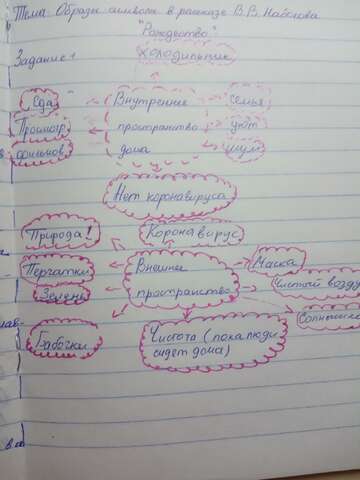 Тема: Образы символы в рассказе В.В. Набокова
"Рождество"
Задание 1
Холодильник
Еда
Внутреннее
семья
Просмотр
пространство
уют
фильмов
дома
шум
Нет коронавируса
Природа!
Коронавирус
Перчатки
Внешнее
Маска
Зелень
пространство
Чистый воздух
Солнышко
Бабочки
Чистота (пока люди
сидят дома)